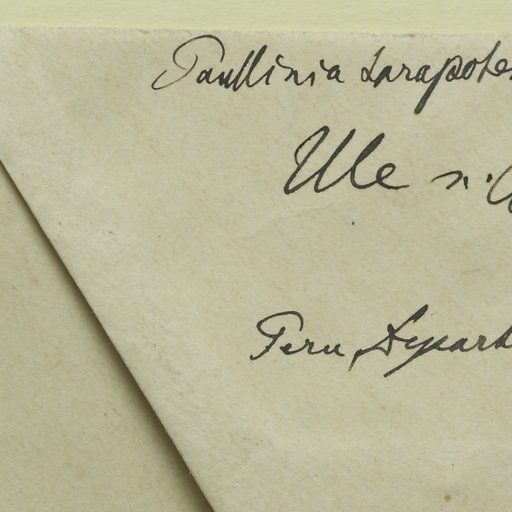 Paullinia tarapote
Ule n.
Peru, Depart